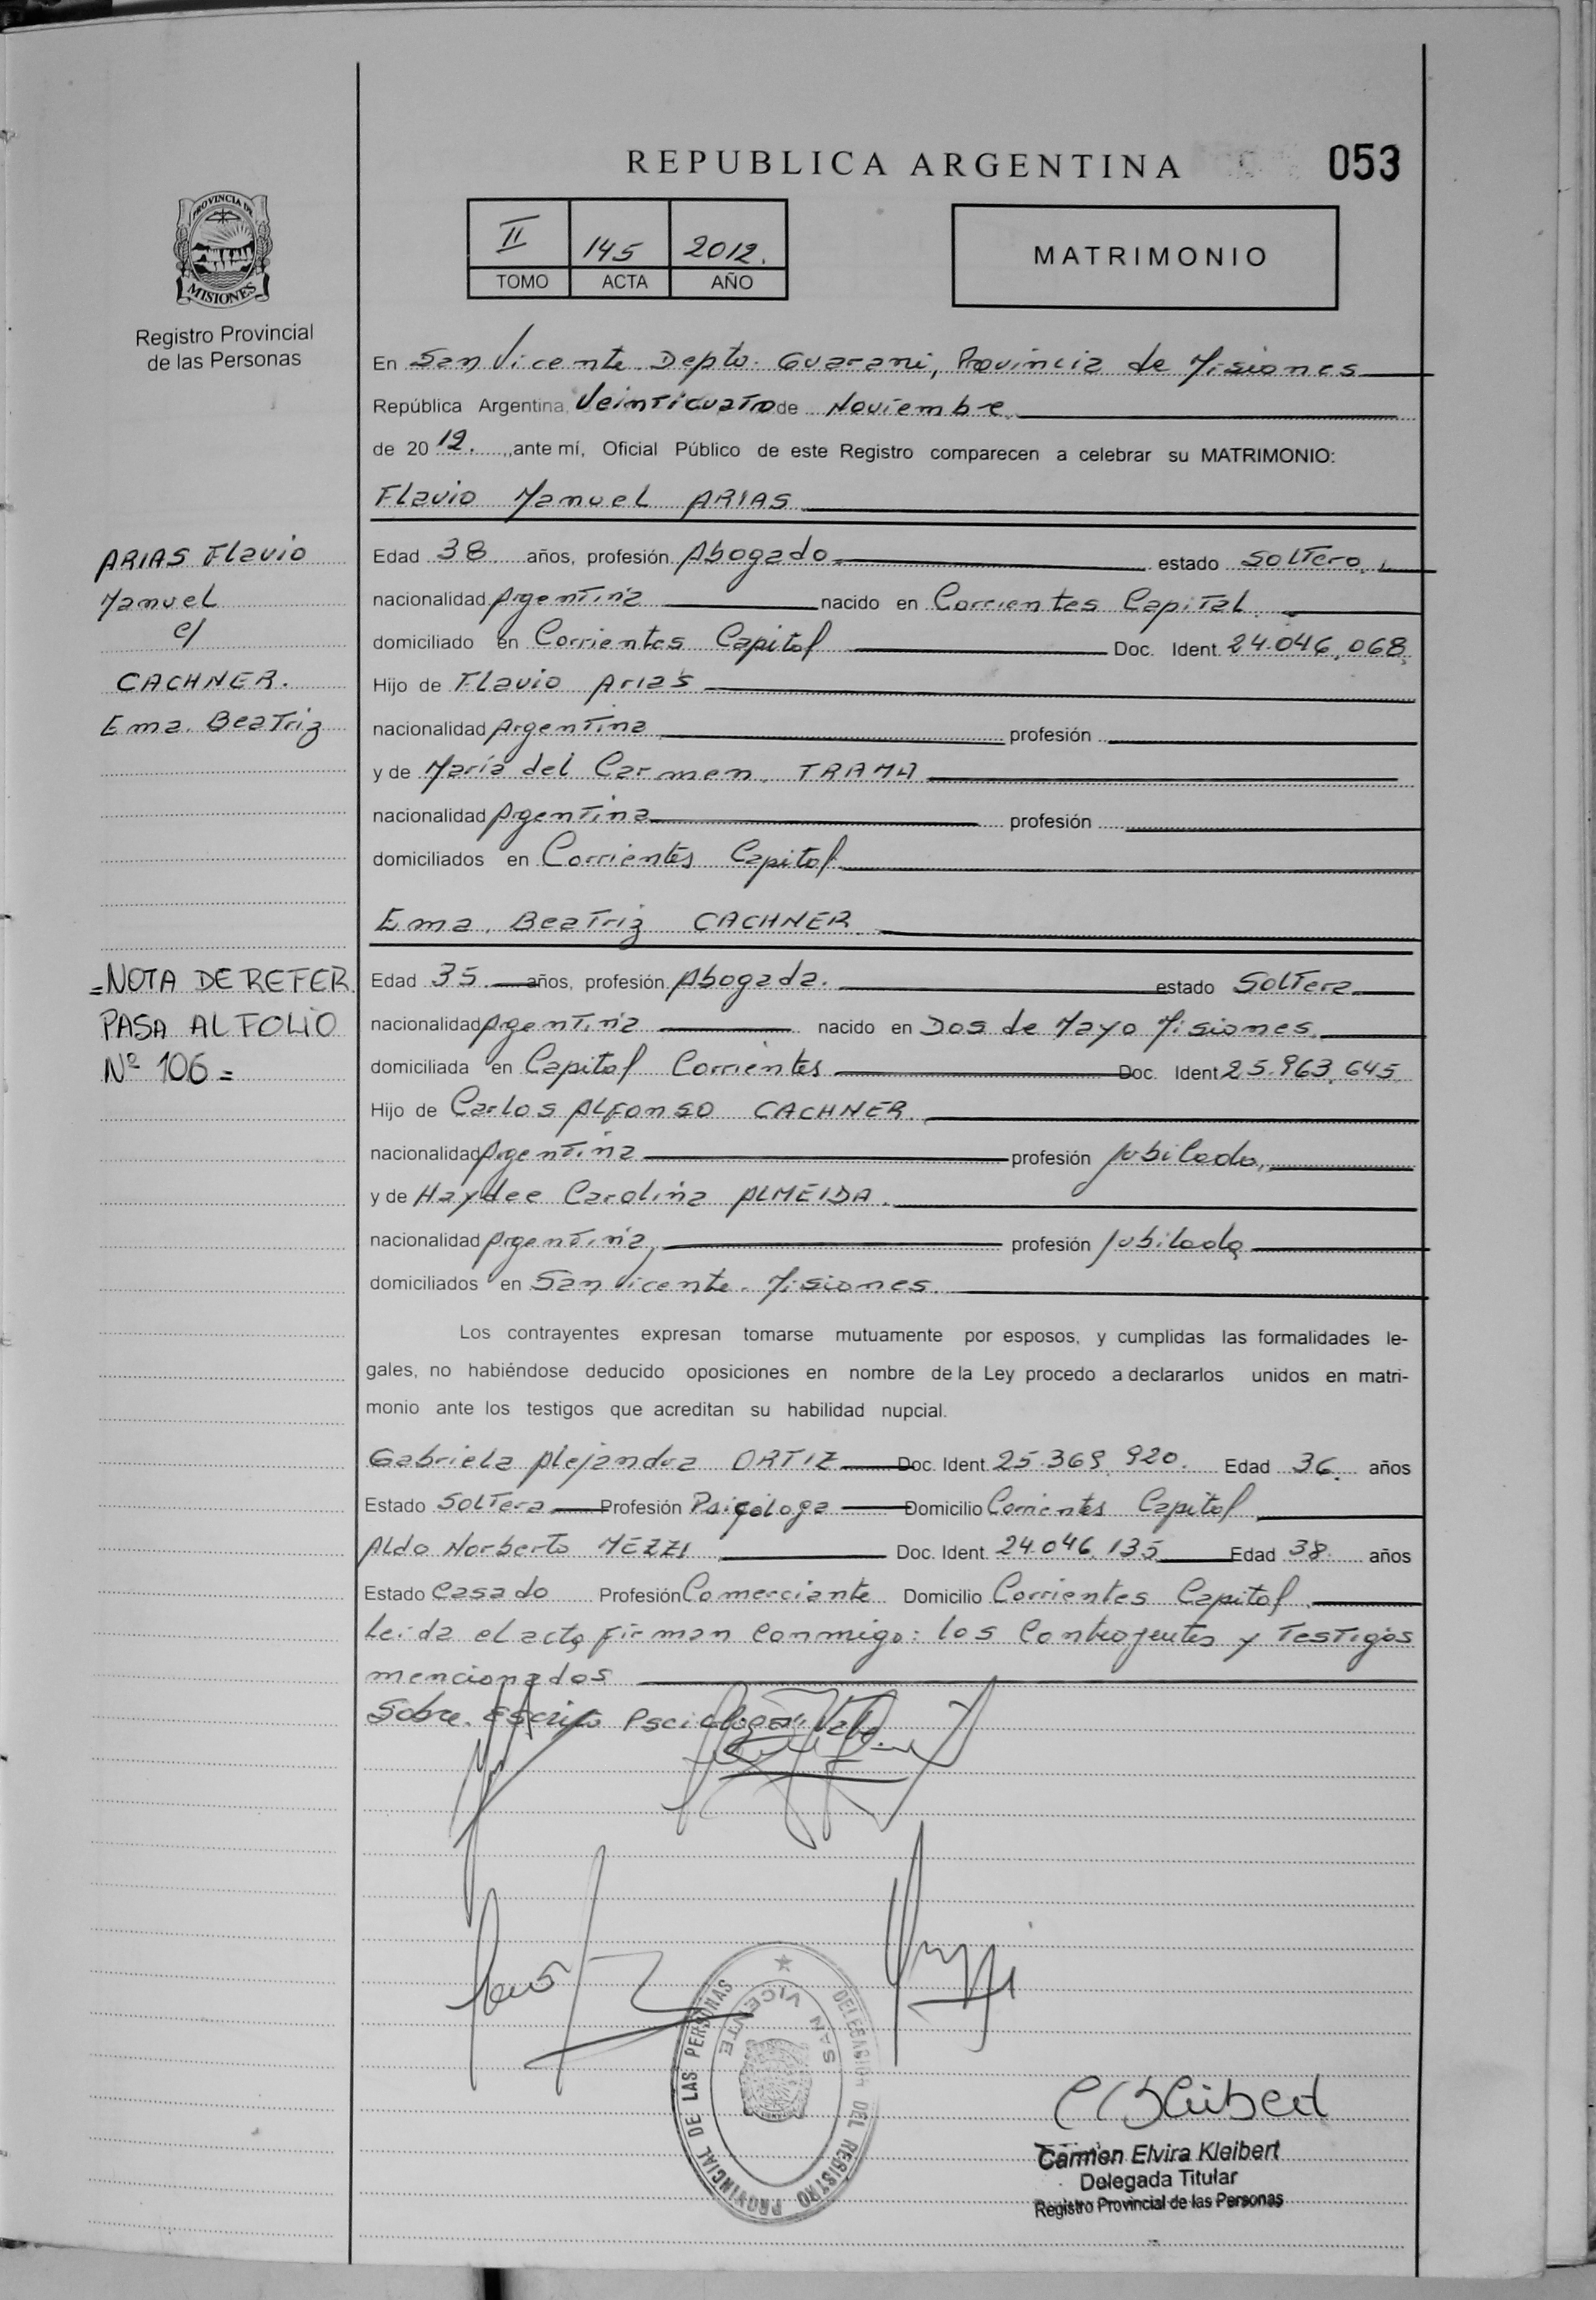 REPUBLICA ARGENTINA
053
PROVINCIA DE
MISIONES
Registro Provincial
de las Personas
II 145 2012.
TOMO ACTA AÑO
MATRIMONIO
En San Vicente Depto. Guarani, Provincia de Misiones
República Argentina, Veinticuatro de Noviembre
de 20 12. ,,ante mí, Oficial Público de este Registro comparecen a celebrar su MATRIMONIO:
Flavio Manuel ARIAS
ARIAS Flavio
Manuel
c/
CACHNER.
Ema. Beatriz
Edad 38 años, profesión Abogado estado Soltero.
nacionalidad Argentina nacido en Corrientes Capital.
domiciliado en Corrientes Capital Doc. Ident. 24.046.068
Hijo de Flavio Arias
nacionalidad Argentina profesión
y de María del Carmen. TRAMA
nacionalidad Argentina profesión
domiciliados en Corrientes Capital
Ema. Beatriz CACHNER
=NOTA DE REFER
PASA AL FOLIO
Nº 106=
Edad 35 años, profesión Abogada. estado Soltera
nacionalidad Argentina nacido en Dos de Mayo Misiones.
domiciliada en Capital Corrientes Doc. Ident 25.963.645
Hijo de Carlos Alfonso CACHNER
nacionalidad Argentina profesión Jubilado,
y de Haydee Carolina ALMEIDA.
nacionalidad Argentina profesión Jubilada
domiciliados en San Vicente. Misiones.
Los contrayentes expresan tomarse mutuamente por esposos, y cumplidas las formalidades le-
gales, no habiéndose deducido oposiciones en nombre de la Ley procedo a declararlos unidos en matri-
monio ante los testigos que acreditan su habilidad nupcial.
Gabriela Alejandra ORTIZ Doc. Ident. 25.369.920. Edad 36. años
Estado Soltera Profesión Psicóloga Domicilio Corrientes Capital
Aldo Norberto MEZZI Doc. Ident. 24.046.135 Edad 38 años
Estado Casado Profesión Comerciante Domicilio Corrientes Capital.
Leída el acta firman conmigo: los Contrayentes y Testigos
mencionados
Sobre. Escrito Psciologa" Vale
DELEGACION DEL REGISTRO PROVINCIAL DE LAS PERSONAS
SAN VICENTE
Carmen Elvira Kleibert
Delegada Titular
Registro Provincial de las Personas